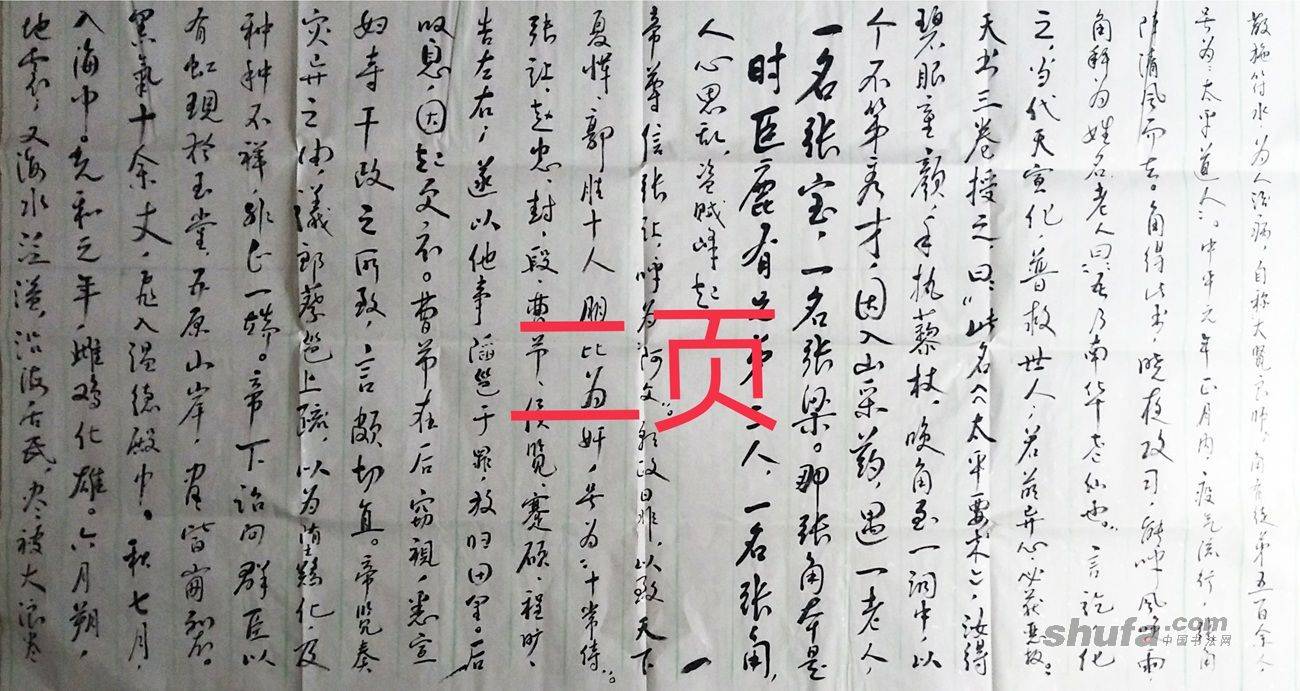 地震,又海水泛溢,沿海居民,尽被大浪卷
入海中。光和元年,雌鸡化雄。六月朔,
黑气十余丈,飞入温德殿中。秋七月,
有虹现于玉堂,五原山岸,尽皆崩裂。
种种不祥,非止一端。帝下诏问群臣以
灾异之由,议郎蔡邕上疏,以为堕鸡化,及
妇寺干政之所致,言颇切直。帝览奏
叹息,因起更衣。曹节在后窃视,悉宣
告左右,遂以他事陷邕于罪,放归田里。后
张让、赵忠、封、段、曹节、侯览、蹇硕、程旷、
夏恽、郭胜十人朋比为奸,号为“十常侍”。
帝尊信张让,呼为“阿父”。朝政日非,以致天下
人心思乱,盗贼峰起 一
时巨鹿有兄弟三人,一名张角,
一名张宝,一名张梁。那张角本是
个不第秀才,因入山采药,遇一老人
碧眼童颜,手执藜杖,唤角至一洞中,以
天书三卷授之,曰:“此名《太平要术》,汝得
之,当代天宣化,普救世人,若萌异心,必获恶报。
角拜为姓名老人曰:吾乃南华老仙也。”言讫化
阵清风而去。角得此书,晓夜攻习,能呼风唤雨,
号为“太平道人”。中平元年正月内,疫气流行,张角
散施符水,为人治病,自称大贤良师。角有徒弟五百余人
二页
shufa.com
中国书法网